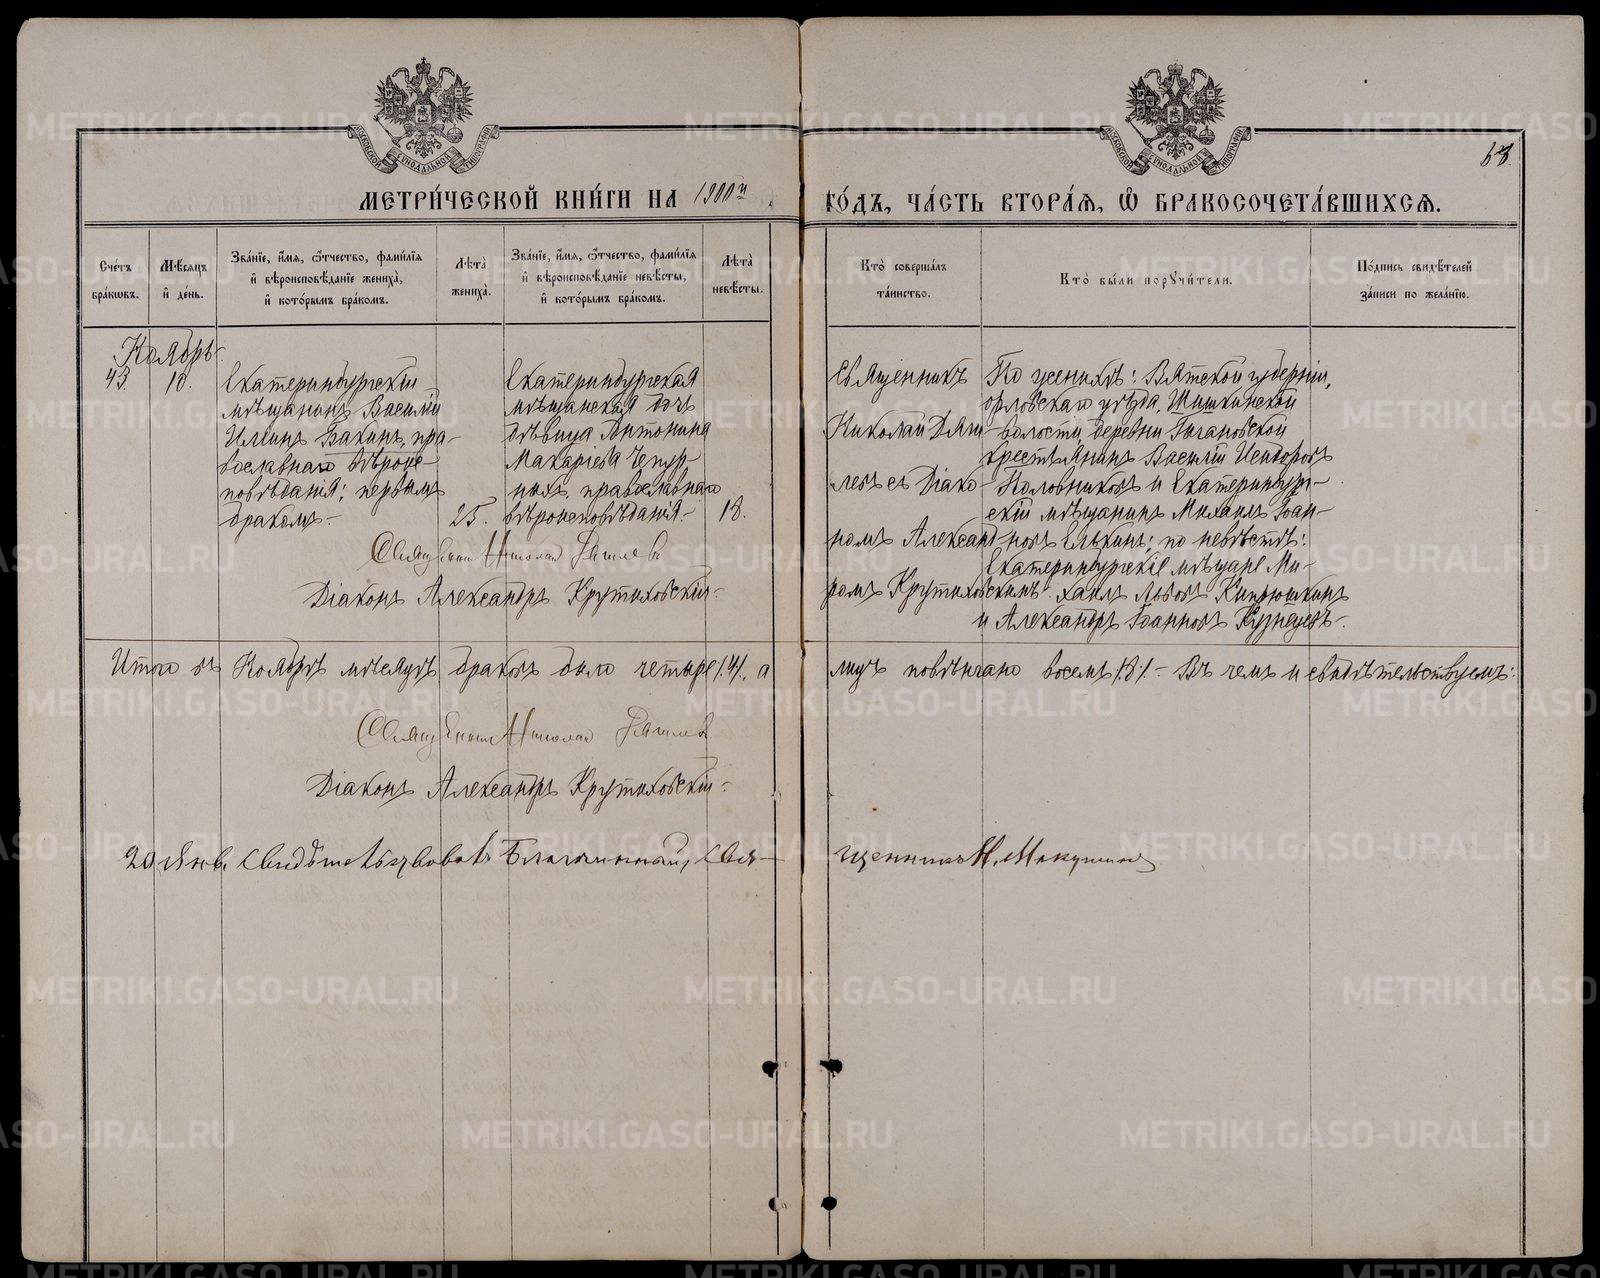 МЕТРИ́ЧЕСКОЙ КНИ́ГИ НА 1900й
ГО́ДЪ, ЧА́СТЬ ВТОРА́Ѧ, Ѽ БРАКОСОЧЕТА́ВШИХСѦ.
Сче́тъ бра́кѡвъ.
Мѣ́сѧцъ и҆ де́нь.
Зва́нїе, и҆́мѧ, ѻ҆́тчество, фами́лїѧ
и҆ вѣроисповѣ́данїе жениха̀,
и҆ кото́рымъ бра́комъ.
Лѣ́та̀ жениха̀.
Зва́нїе, и҆́мѧ, ѻ҆́тчество, фами́лїѧ
и҆ вѣроисповѣ́данїе невѣ́сты,
и҆ кото́рымъ бра́комъ.
Лѣ́та̀ невѣ́сты.
Кто̀ соверша́лъ та́инство.
Кто̀ бы́ли порꙋчи́тели.
По́дпись свидѣ́телей
за́писи по жела́нїю.
Ноябрь
43. 10.
Екатеринбургскій
мѣщанинъ Василій
Ильинъ Бакинъ, пра-
вославнаго вѣроис-
повѣданія; первымъ
бракомъ.
25.
Екатеринбургская
мѣщанская дочь
дѣвица Антонина
Макарьева Чепур-
ныхъ, православнаго
вѣроисповѣданія.
18.
Священникъ
Николай Дяги-
левъ съ Діако-
номъ Александ-
ромъ Крутиховскимъ
По женихѣ: Вятской губерніи,
Орловскаго уѣзда, Шишкинской
волости, деревни
крестьянинъ Василій Исидоровъ
Половниковъ и Екатеринбург-
скій мѣщанинъ Михаилъ Іоан-
новъ Елькинъ; по невѣстѣ:
Екатеринбургскіе мѣщане Ми-
хаилъ Львовъ Кипрюшкинъ
и Александръ Іоанновъ Кузнецовъ.
Священникъ Николай Дягилевъ
Діаконъ Александръ Крутиховскій.
Итого въ Ноябрѣ мѣсяцѣ браковъ было четыре /4/, а
лицъ повѣнчано восемь /8/ - Въ чемъ и свидѣтельствуемъ:
Священникъ Николай Дягилевъ
Діаконъ Александръ Крутиховскій.
20 Янв. свидѣтельствовалъ Благочинный, свя-
щенникъ Н. Макушинъ
METRIKI.GASO-URAL.RU